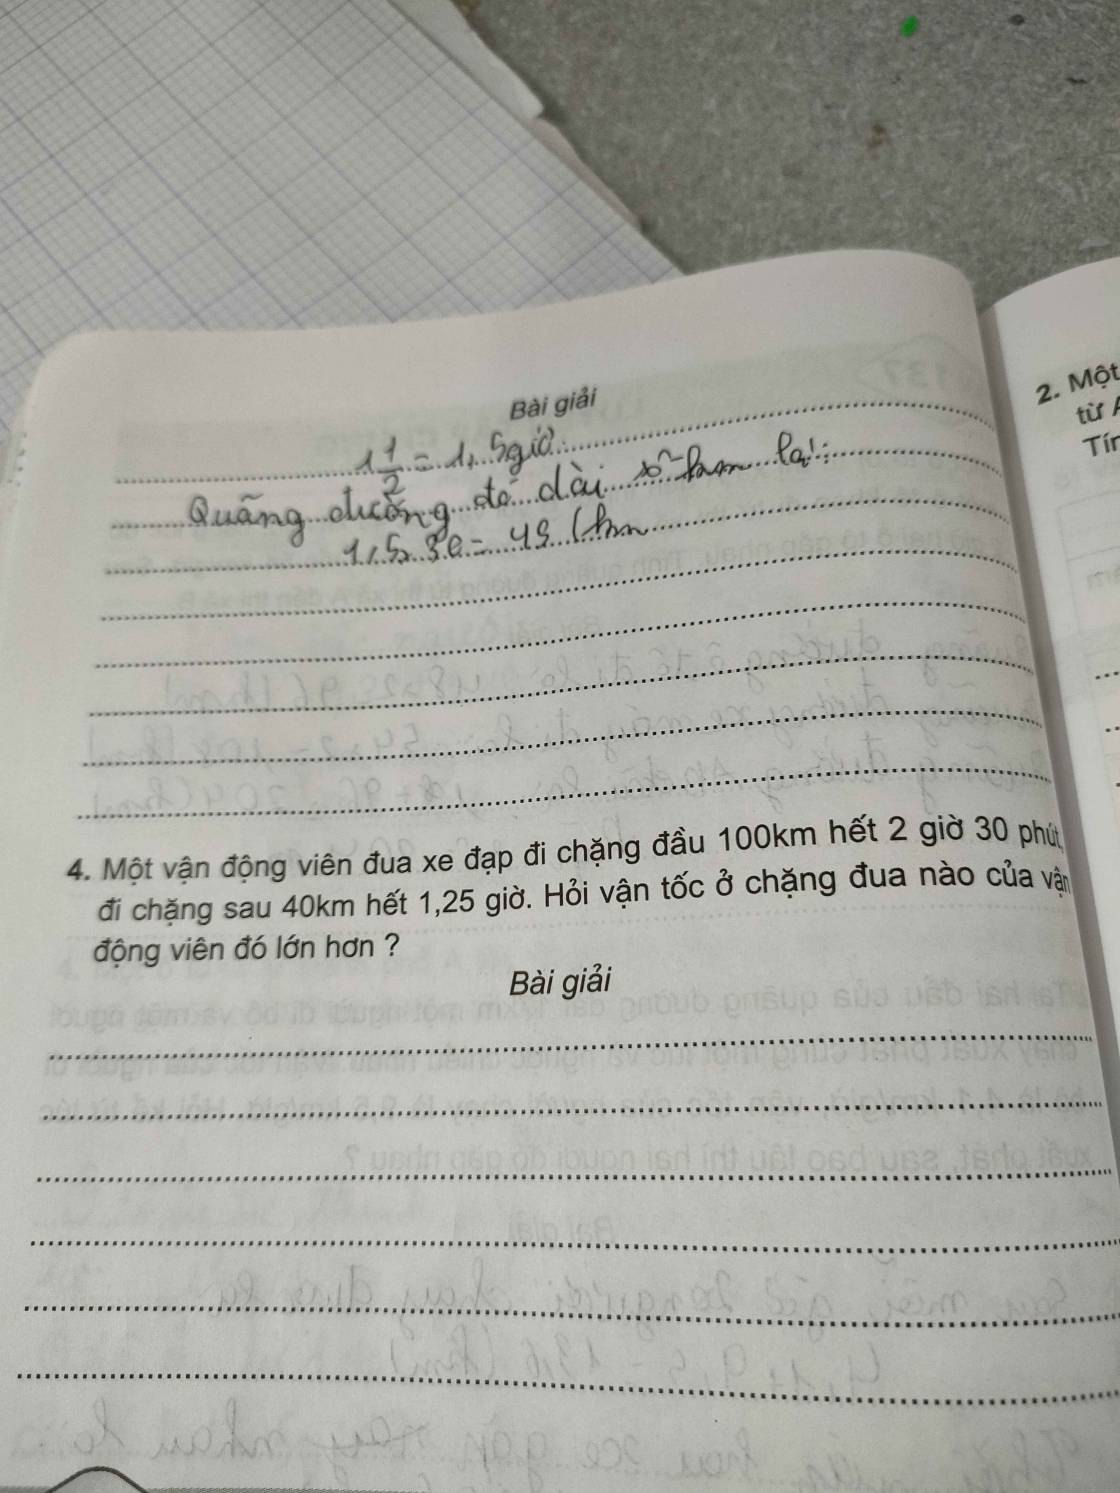 Bài giải
1 1/2 = 1,5 giờ
Quãng đường đó dài số km là:
1,5 x 30 = 45 (km
4. Một vận động viên đua xe đạp đi chặng đầu 100km hết 2 giờ 30 phút,
đi chặng sau 40km hết 1,25 giờ. Hỏi vận tốc ở chặng đua nào của vận
động viên đó lớn hơn ?
Bài giải
2. Một
từ